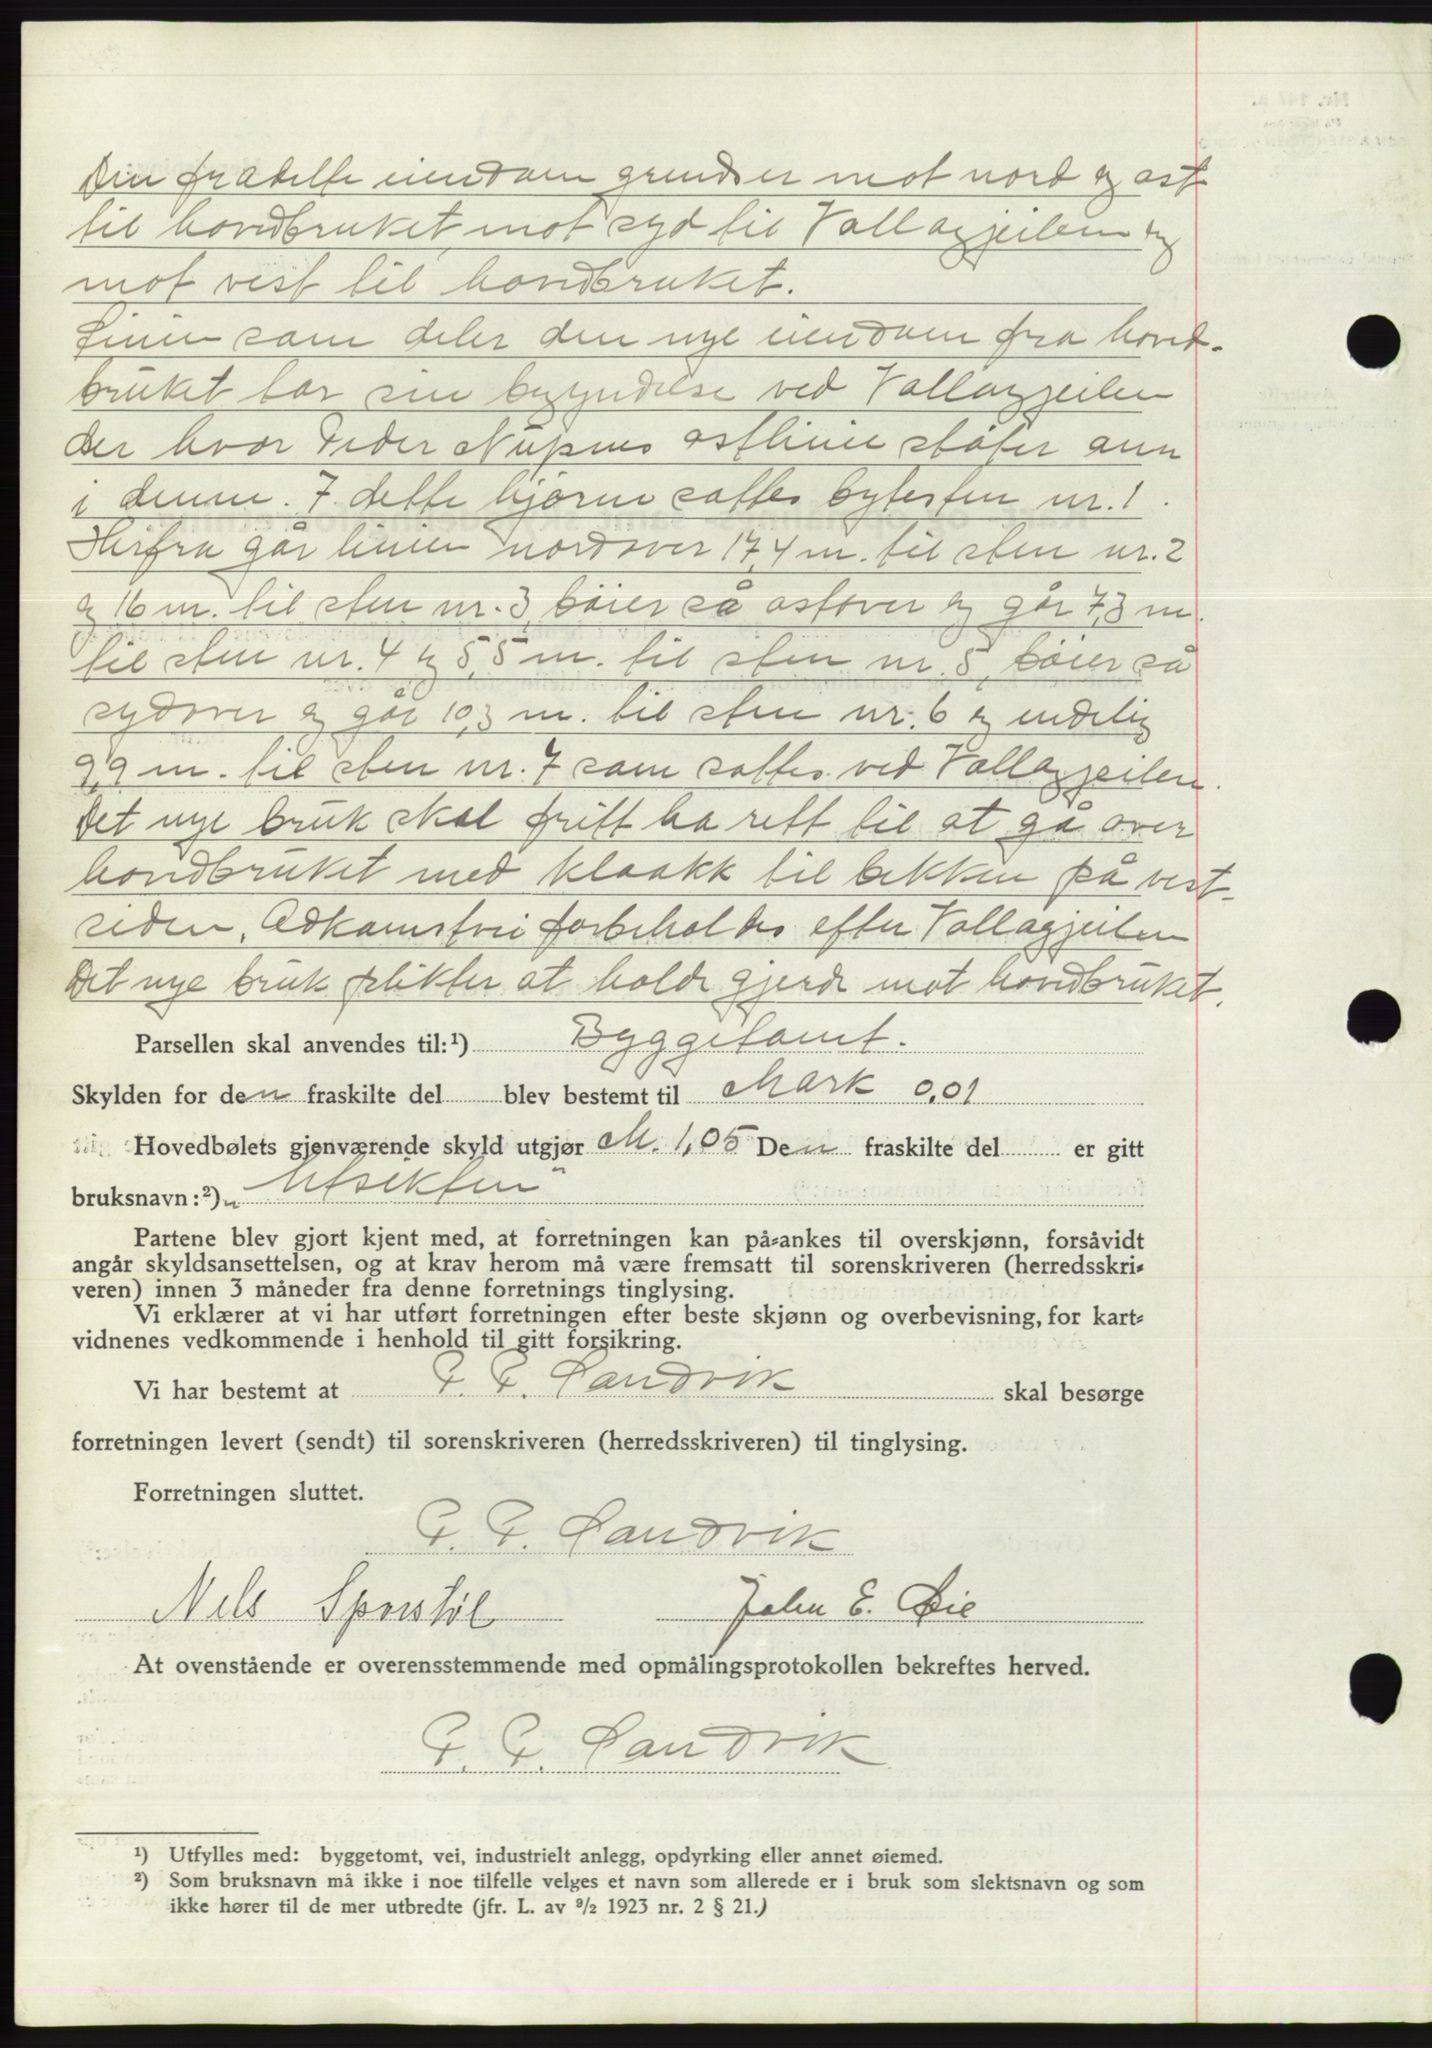 Den fradelte eiendom grendser mot nord og ost
til hovedbruket, mot syd til Vallagjeilen og
mot vest til hovedbruket.
Linien som deler den nye eiendom fra hoved-
bruket tar sin begyndelse ved Vallagjeilen
der hvor Peder Nupens ostlinie støter ann
i denne. I dette hjørne sattes bytesten nr. 1.
Herfra går linien nordover 17,4 m. til sten nr. 2
og 16 m. til sten nr. 3, bøier så ostover og går 7,3 m.
til sten nr. 4 og 5,5 m. til sten nr. 5, bøier så
sydover og går 10,3 m. til sten nr. 6 og endelig
9,9 m. til sten nr. 7 som sattes ved Vallagjeilen.
Det nye bruk skal fritt ha rett til at gå over
hovedbruket med kloakk til bekken på vest-
siden. Adkomstvei forbeholdes efter Vallagjeilen
Det nye bruk plikter at holde gjerde mot hovedbruket.
Parsellen skal anvendes til:¹) Byggetomt.
Skylden for den fraskilte del blev bestemt til Mark 0,01
Hovedbølets gjenværende skyld utgjør M. 1,05 Den fraskilte del er gitt
bruksnavn:²) „Utsikten"
Partene blev gjort kjent med, at forretningen kan på-ankes til overskjønn, forsåvidt
angår skyldsansettelsen, og at krav herom må være fremsatt til sorenskriveren (herredsskri-
veren) innen 3 måneder fra denne forretnings tinglysing.
Vi erklærer at vi har utført forretningen efter beste skjønn og overbevisning, for kart-
vidnenes vedkommende i henhold til gitt forsikring.
Vi har bestemt at P. P. Sandvik skal besørge
forretningen levert (sendt) til sorenskriveren (herredsskriveren) til tinglysing.
Forretningen sluttet.
P. P. Sandvik
Nels Sporstøl John E. Øie
At ovenstående er overensstemmende med opmålingsprotokollen bekreftes herved.
P. P. Sandvik
¹) Utfylles med: byggetomt, vei, industrielt anlegg, opdyrking eller annet øiemed.
²) Som bruksnavn må ikke i noe tilfelle velges et navn som allerede er i bruk som slektsnavn og som
ikke hører til de mer utbredte (jfr. L. av ⁹/₂ 1923 nr. 2 § 21.)